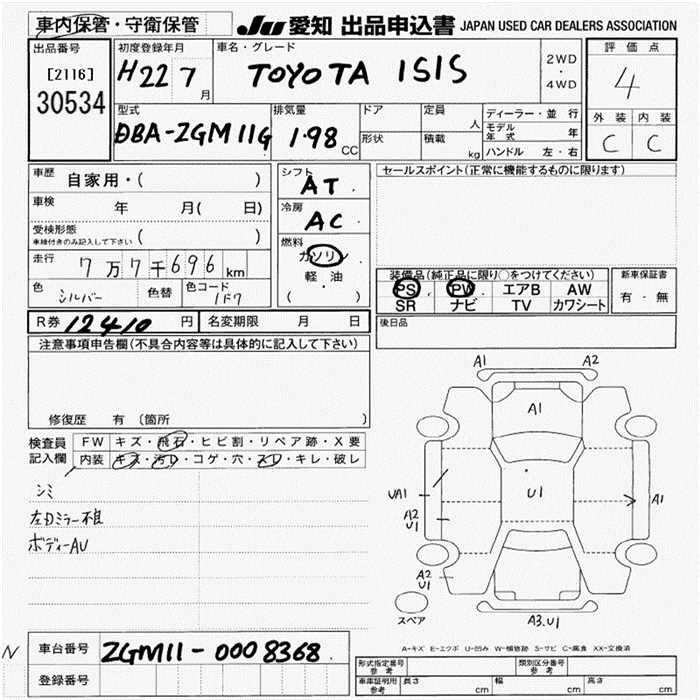 車内保管・守衛保管
JU 愛知 出品申込書 JAPAN USED CAR DEALERS ASSOCIATION
出品番号
[2116]
30534
初度登録年月
H22 7 月
車名・グレード
TOYOTA ISIS
2WD
・
4WD
評価点
4
外装 内装
C C
型式
DBA-ZGM11G
排気量
1.98 CC
ドア
形状
定員 人
積載 kg
ディーラー・並行
モデル年式 年
ハンドル 左・右
車歴 自家用・( )
車検 年 月( 日)
受検形態
車検付きのみ記入して下さい ( )
走行 7万7千696km
色 シルバー 色替
色コード 1F7
シフト
AT
冷房
AC
燃料
ガソリン
軽・油
( )
セールスポイント(正常に機能するものに限ります)
装備品(純正品に限り○をつけてください)
PS PW エアB AW
SR ナビ TV カワシート
新車保証書
有・無
R券 12410 円
名変期限 月 日
後日品
注意事項申告欄(不具合内容等は具体的に記入して下さい)
修復歴 有 (箇所 )
検査員
記入欄
FW キズ・飛石・ヒビ割・リペア跡・X要
内装 キズ・汚レ・コゲ・穴・スレ・キレ・破レ
シミ
左Dミラー不良
ボディーAU
A1 A2
A1
UA1
U1
A1
A2
U1
A2
U1
A3.U1
スペア
A-キズ E-エクボ U-凹み W-補修跡 S-サビ C-腐食 XX-交換済
N
車台番号 ZGM11-0008368
登録番号
形式指定番号
参考
類別区分番号
参考
車庫証明用
参考
長さ cm 幅 cm 高さ cm